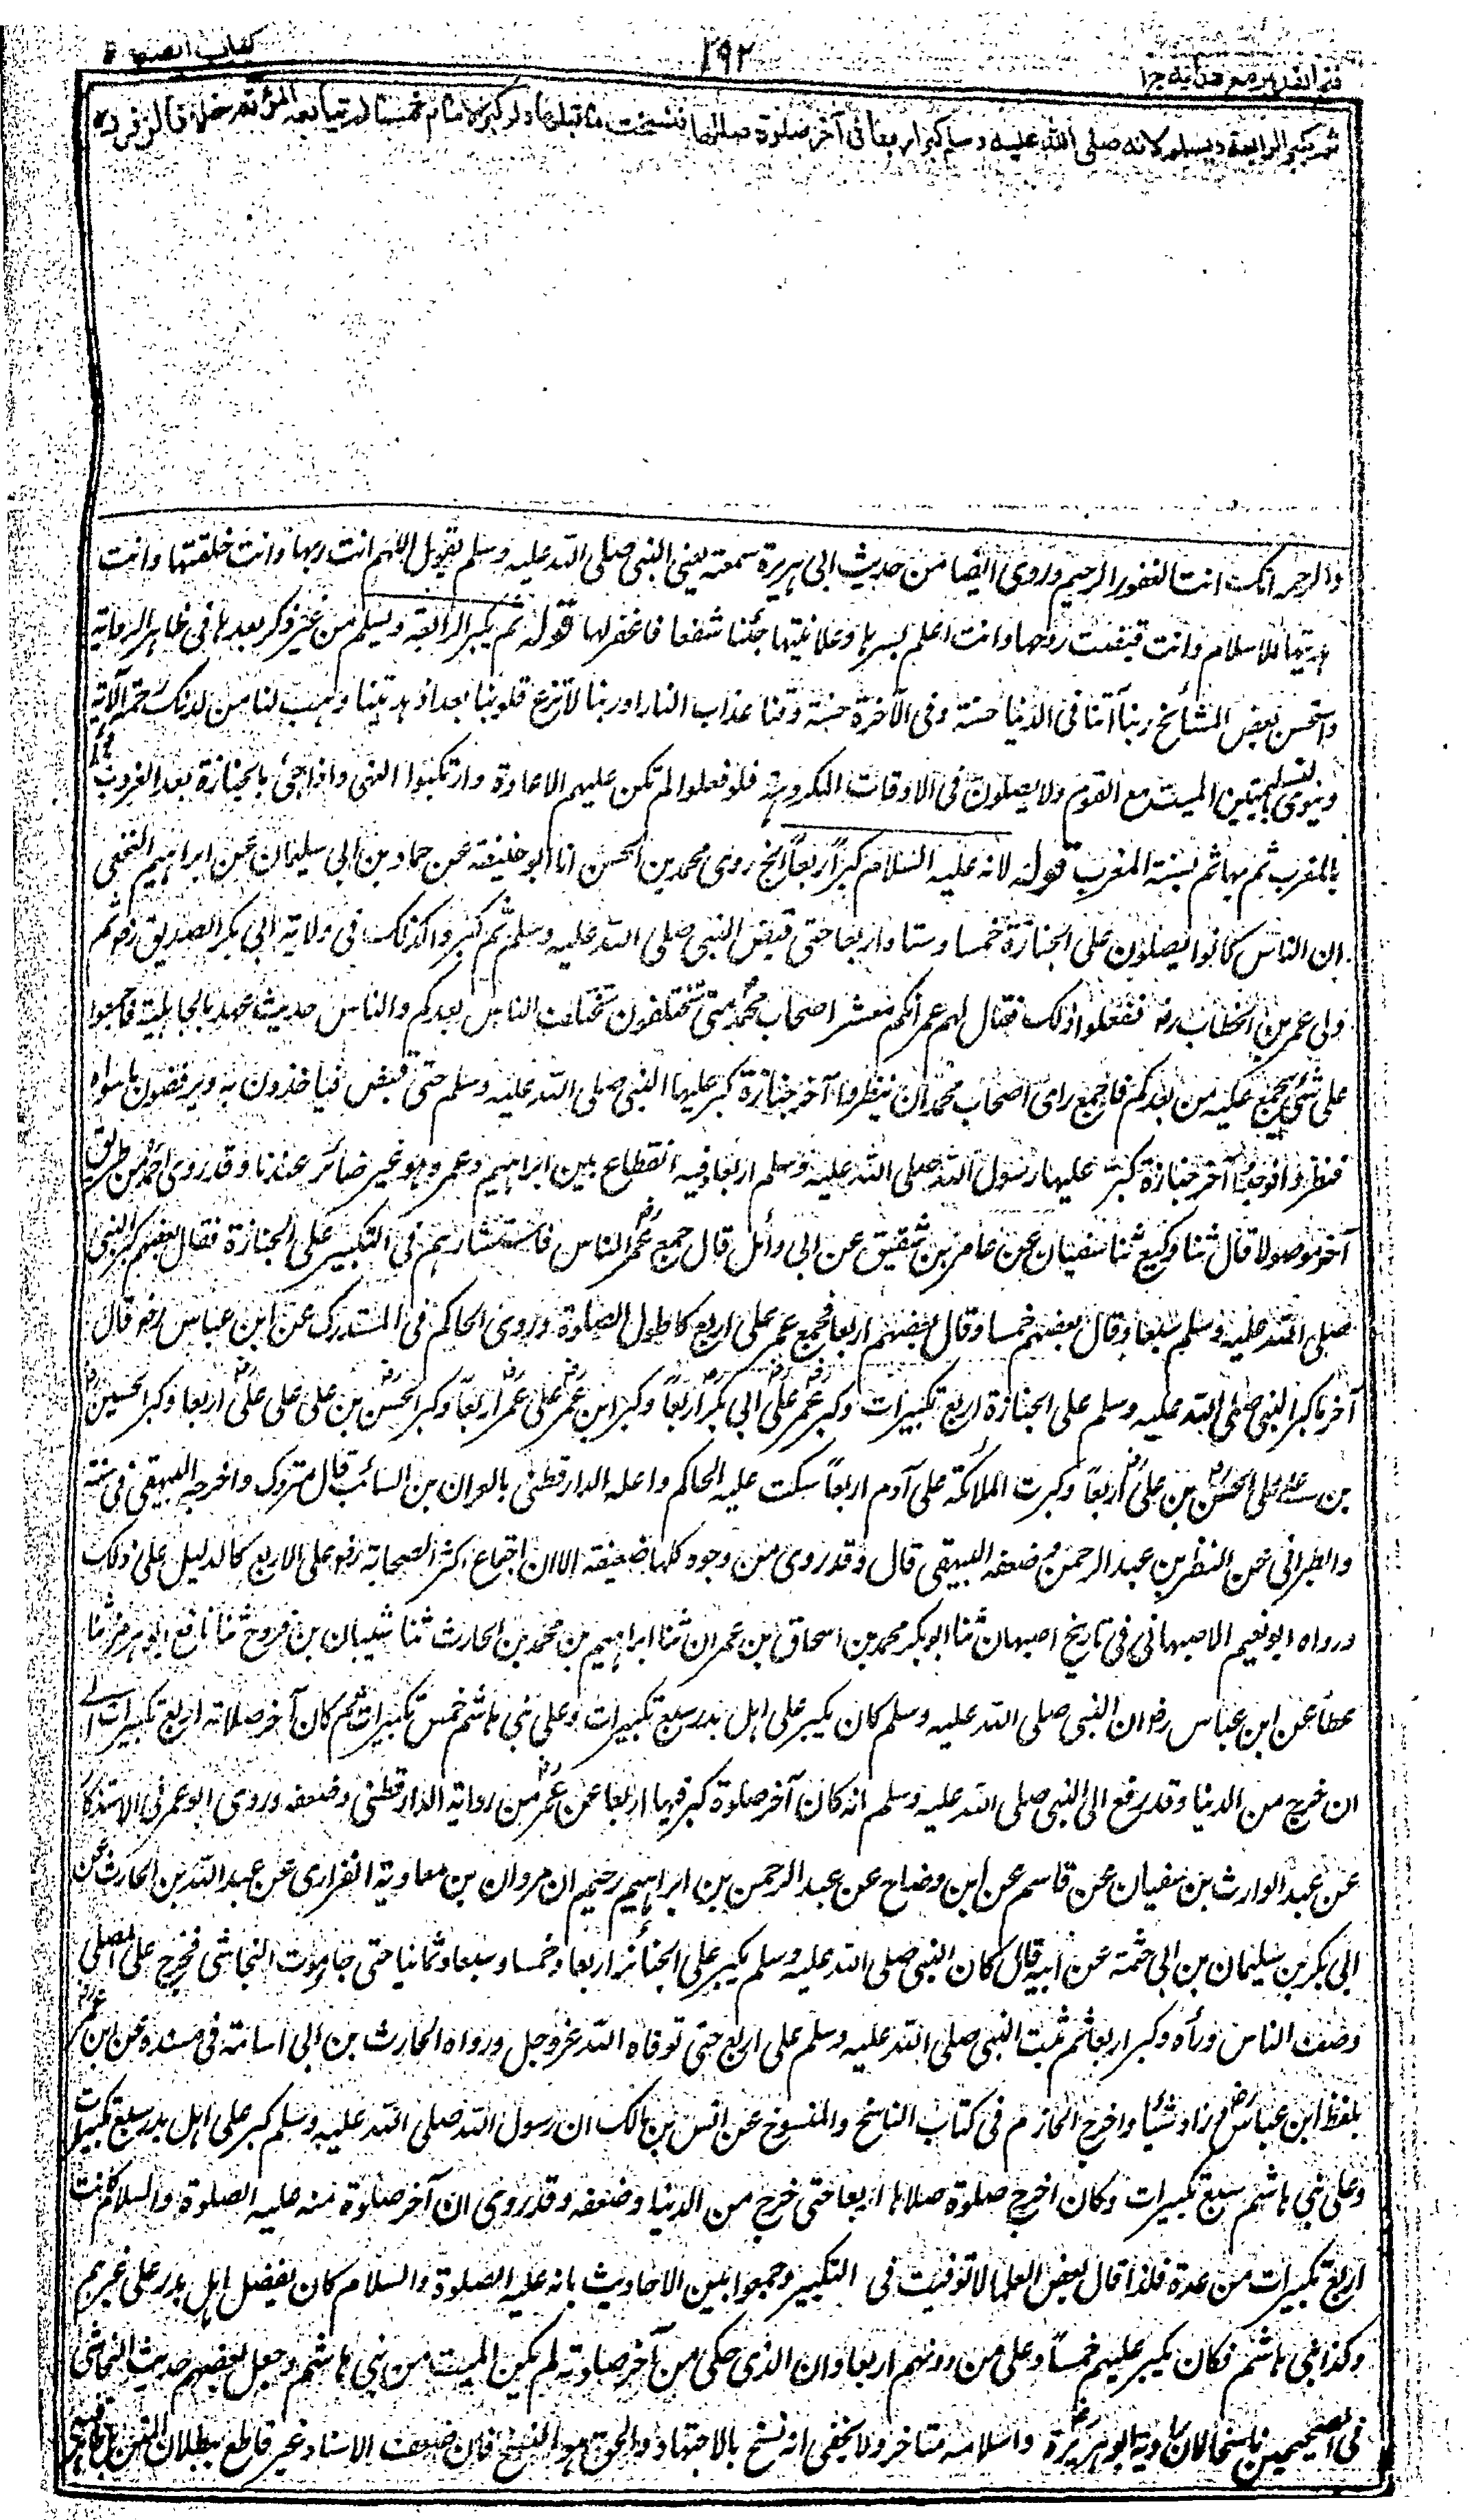 كتاب الصلوة
٢٩٢
فتح القدير مع هداية ج١
ثم يكبر الرابعة ويسلم لانه صلى الله عليه وسلم كبر اربعا في آخر صلوة صلاها فنسخت ما قبلها ولو كبر الامام خمسا لم يتابعه المؤتم خلافا لزفر
والرحمة انك انت الغفور الرحيم وروى ايضا من حديث ابى هريرة سمعته يعنى النبى صلى الله عليه وسلم يقول اللهم انت ربها وانت خلقتها وانت
هديتها للاسلام وانت قبضت روحها وانت اعلم بسرها وعلانيتها جئنا شفعا فاغفر لها قوله ثم يكبر الرابعة ويسلم من غير ذكر بعدها في ظاهر الرواية
واستحسن بعض المشائخ ربنا آتنا في الدنيا حسنة وفي الآخرة حسنة وقنا عذاب النار او ربنا لا تزغ قلوبنا بعد اذ هديتنا وهب لنا من لدنك رحمة الآية
وينوى بتسليمتين الميت مع القوم ولا يصلون في الاوقات المكروهة فلو فعلوا لم تكن عليهم الاعادة وارتكبوا النهى واذا جئ بالجنازة بعد الغروب بدأوا
بالمغرب ثم بها ثم بسنة المغرب قوله لانه عليه السلام كبر اربعاً الخ روى محمد بن الحسن انا ابو حنيفة عن حماد بن ابى سليمان عن ابراهيم النخعى
ان الناس كانوا يصلون على الجنازة خمسا وستا واربعا حتى قبض النبى صلى الله عليه وسلم ثم كبروا كذلك في ولاية ابى بكر الصديق رضـ ثم
ولى عمر بن الخطاب رضـ ففعلوا ذلك فقال لهم عمر انكم معشر اصحاب محمد متى تختلفون تختلف الناس بعدكم والناس حديث عهد بالجاهلية فاجمعوا
على شئ يجمع عليه من بعدكم فاجمع راى اصحاب محمد ان ينظروا آخر جنازة كبر عليها النبى صلى الله عليه وسلم حتى قبض فياخذون به ويرفضون ما سواه
فنظروا فوجدوا آخر جنازة كبر عليها رسول الله صلى الله عليه وسلم اربعا وفيه انقطاع بين ابراهيم وعمر وهو غير ضائر عندنا وقد روى احمد من طريق
آخر موصولا قال ثنا وكيع ثنا سفيان عن عامر بن شقيق عن ابى وائل قال جمع عمر رضـ الناس فاستشارهم في التكبير على الجنازة فقال بعضهم كبر النبى
صلى الله عليه وسلم سبعا وقال بعضهم خمسا وقال بعضهم اربعا فجمع عمر على اربع كاطول الصلوة وروى الحاكم في المستدرك عن ابن عباس رضـ قال
آخر ما كبر النبى صلى الله عليه وسلم على الجنازة اربع تكبيرات وكبر عمر رضـ على ابى بكر رضـ اربعاً وكبر ابن عمر رضـ على عمر رضـ اربعاً وكبر الحسن رضـ بن على على على رضـ اربعا وكبر الحسين رضـ
بن على على الحسن رضـ بن على رضـ اربعاً وكبرت الملائكة على آدم اربعاً سكت عليه الحاكم واعله الدارقطنى بالفرات بن السائب قال متروك واخرجه البيهقى في سننه
والطبرانى عن النضر بن عبد الرحمن وضعفه البيهقى قال وقد روى من وجوه كلها ضعيفة الا ان اجتماع اكثر الصحابة رضـ على الاربع كالدليل على ذلك
ورواه ابو نعيم الاصبهانى في تاريخ اصبهان ثنا ابو بكر محمد بن اسحاق بن عمران ثنا ابراهيم بن محمد بن الحارث ثنا شيبان بن فروخ ثنا نافع ابو هرمز ثنا
عطاء عن ابن عباس رضـ ان النبى صلى الله عليه وسلم كان يكبر على اهل بدر سبع تكبيرات وعلى بنى هاشم خمس تكبيرات ثم كان آخر صلاته اربع تكبيرات الى
ان خرج من الدنيا وقد رفع الى النبى صلى الله عليه وسلم انه كان آخر صلوة كبر فيها اربعا عن عمر رضـ من رواية الدارقطنى وضعفه وروى ابو عمر في الاستذكار
عن عبد الوارث بن سفيان عن قاسم عن ابن وضاح عن عبد الرحمن بن ابراهيم دحيم ان مروان بن معاوية الفزارى عن عبد الله بن الحارث عن
ابى بكر بن سليمان بن ابى حثمة عن ابيه قال كان النبى صلى الله عليه وسلم يكبر على الجنائز اربعا وخمسا وسبعا وثمانيا حتى جاء موت النجاشى فخرج على المصلى
وصف الناس وراه وكبر اربعا ثم ثبت النبى صلى الله عليه وسلم على اربع حتى توفاه الله عز وجل ورواه الحارث بن ابى اسامة في مسنده عن ابن عمر رضـ
بلفظ ابن عباس رضـ وزاد شيئا واخرج الحازمى في كتاب الناسخ والمنسوخ عن انس بن مالك ان رسول الله صلى الله عليه وسلم كبر على اهل بدر سبع تكبيرات
وعلى بنى هاشم سبع تكبيرات وكان اخرج صلوة صلاها اربعا حتى خرج من الدنيا وضعفه وقد روى ان آخر صلوة منه عليه الصلوة والسلام كانت
اربع تكبيرات من عدة فلذا قال بعض العلماء لا توقيت في التكبير وجمعوا بين الاحاديث بانه عليه الصلوة والسلام كان يفضل اهل بدر على غيرهم
وكذا بنى هاشم فكان يكبر عليهم خمساً وعلى من دونهم اربعا وان الذى حكى من آخر صلوته لم يكن الميت من بنى هاشم وجعل بعضهم حديث النجاشى
في الصحيحين ناسخا لان راويه ابو هريرة رضـ واسلامه متاخر ولا يخفى انه نسخ بالاجتهاد والحق هو النسخ فان ضعف الاسناد غير قاطع ببطلان المتن